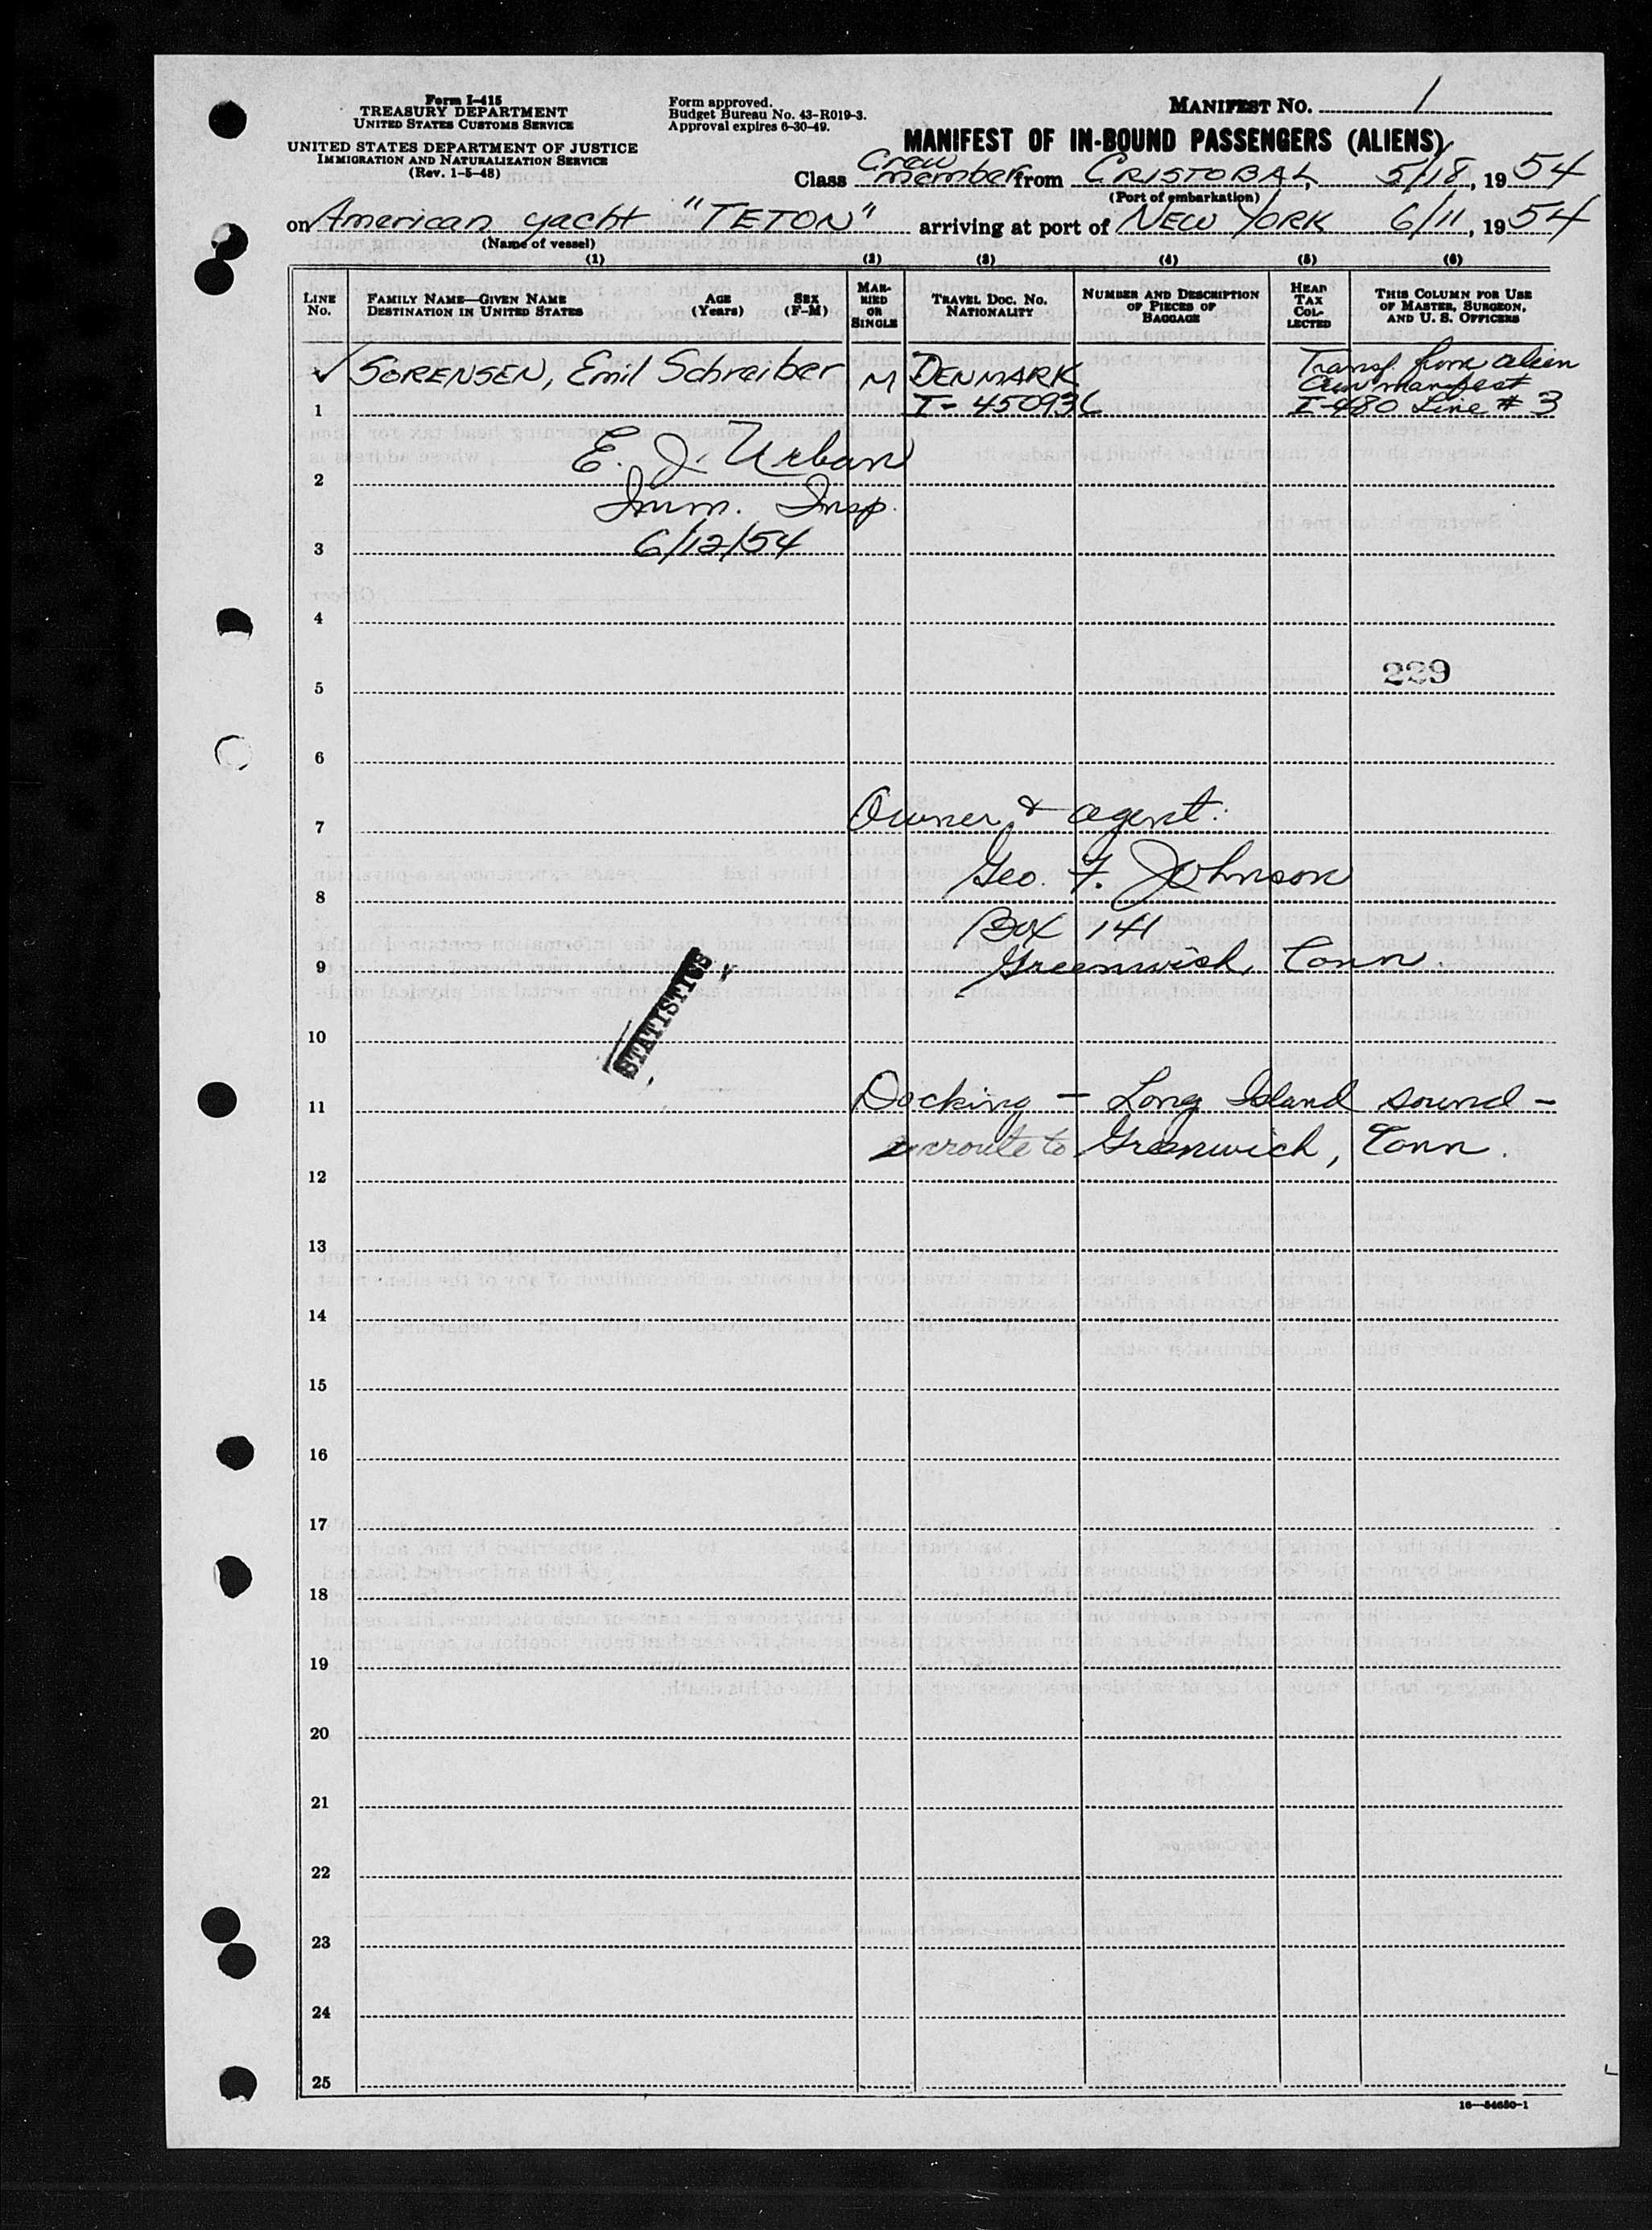 Form I-415
TREASURY DEPARTMENT
UNITED STATES CUSTOMS SERVICE
UNITED STATES DEPARTMENT OF JUSTICE
IMMIGRATION AND NATURALIZATION SERVICE
(Rev. 1-5-48)
Form approved.
Budget Bureau No. 43-R019-3.
Approval expires 6-30-49.
MANIFEST NO. 1
MANIFEST OF IN-BOUND PASSENGERS (ALIENS)
Class Crew member from CRISTOBAL, 5/18, 1954
(Port of embarkation)
on American yacht "TETON" arriving at port of NEW YORK 6/11, 1954
(Name of vessel)
(1) (2) (3) (4) (5) (6)
LINE No.
FAMILY NAME—GIVEN NAME
DESTINATION IN UNITED STATES
AGE (Years)
SEX (F-M)
MARRIED OR SINGLE
TRAVEL DOC. NO.
NATIONALITY
NUMBER AND DESCRIPTION OF PIECES OF BAGGAGE
HEAD TAX COLLECTED
THIS COLUMN FOR USE OF MASTER, SURGEON, AND U. S. OFFICERS
✓ SORENSEN, Emil Schreiber M DENMARK Transf. from alien
Crew manifest
1 I-450936 I-480 Line # 3
E. J. Urban
2
Imm. Insp.
3 6/12/54
4
229
5
6
Owner & agent:
7
Geo. F. Johnson
8
Box 141
9 Greenwich, Conn.
STATISTICS
10
11 Docking — Long Island sound —
enroute to Greenwich, Conn.
12
13
14
15
16
17
18
19
20
21
22
23
24
25
16—54650-1